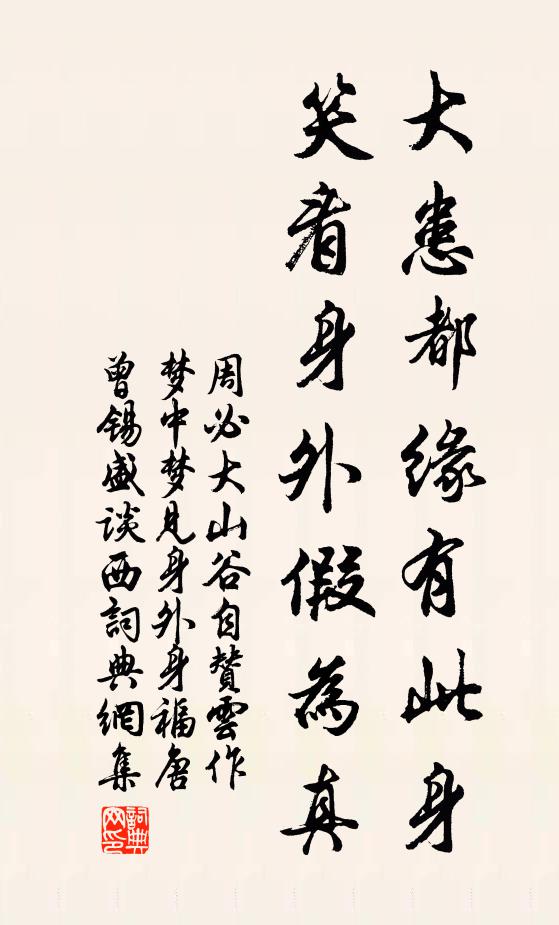 大患都缘有此身
笑看身外假為真
周必大山谷自賛雲作
梦中梦見身外身福唐
曾錫盛談西詞典網集
詞典网印